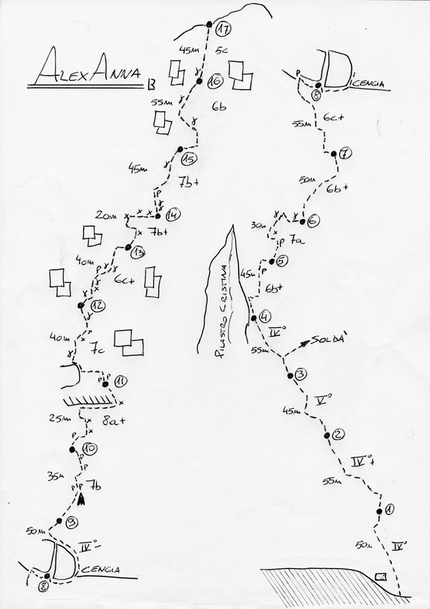 ALEXANNA
B
17
45m 5c
16
55m 6b
15
45m 7b+
P
14
20m 7b+
13
40m P 6c+
12
40m 7c
11
P
25m 8a+
10
P
P
35m 7b
P P
9
50m IV°-
CENGIA
8
P
CENGIA
8
55m 6c+
7
50m 6b+
6
30m 7a
P
5
P
45m 6b+
PILASTRO CRISTINA
4
IV°
55m SOLDA'
3
V°
45m
2
IV°+
55m
1
50m IV°